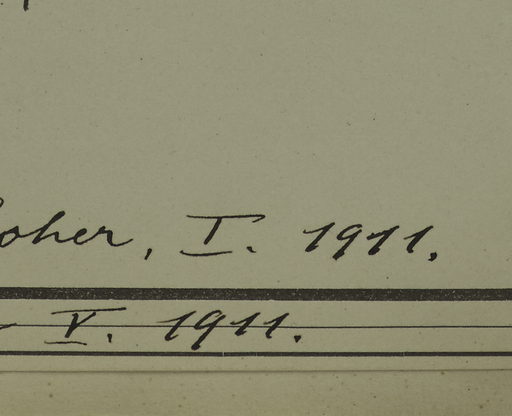 oher, I. 1911.
V. 1911.